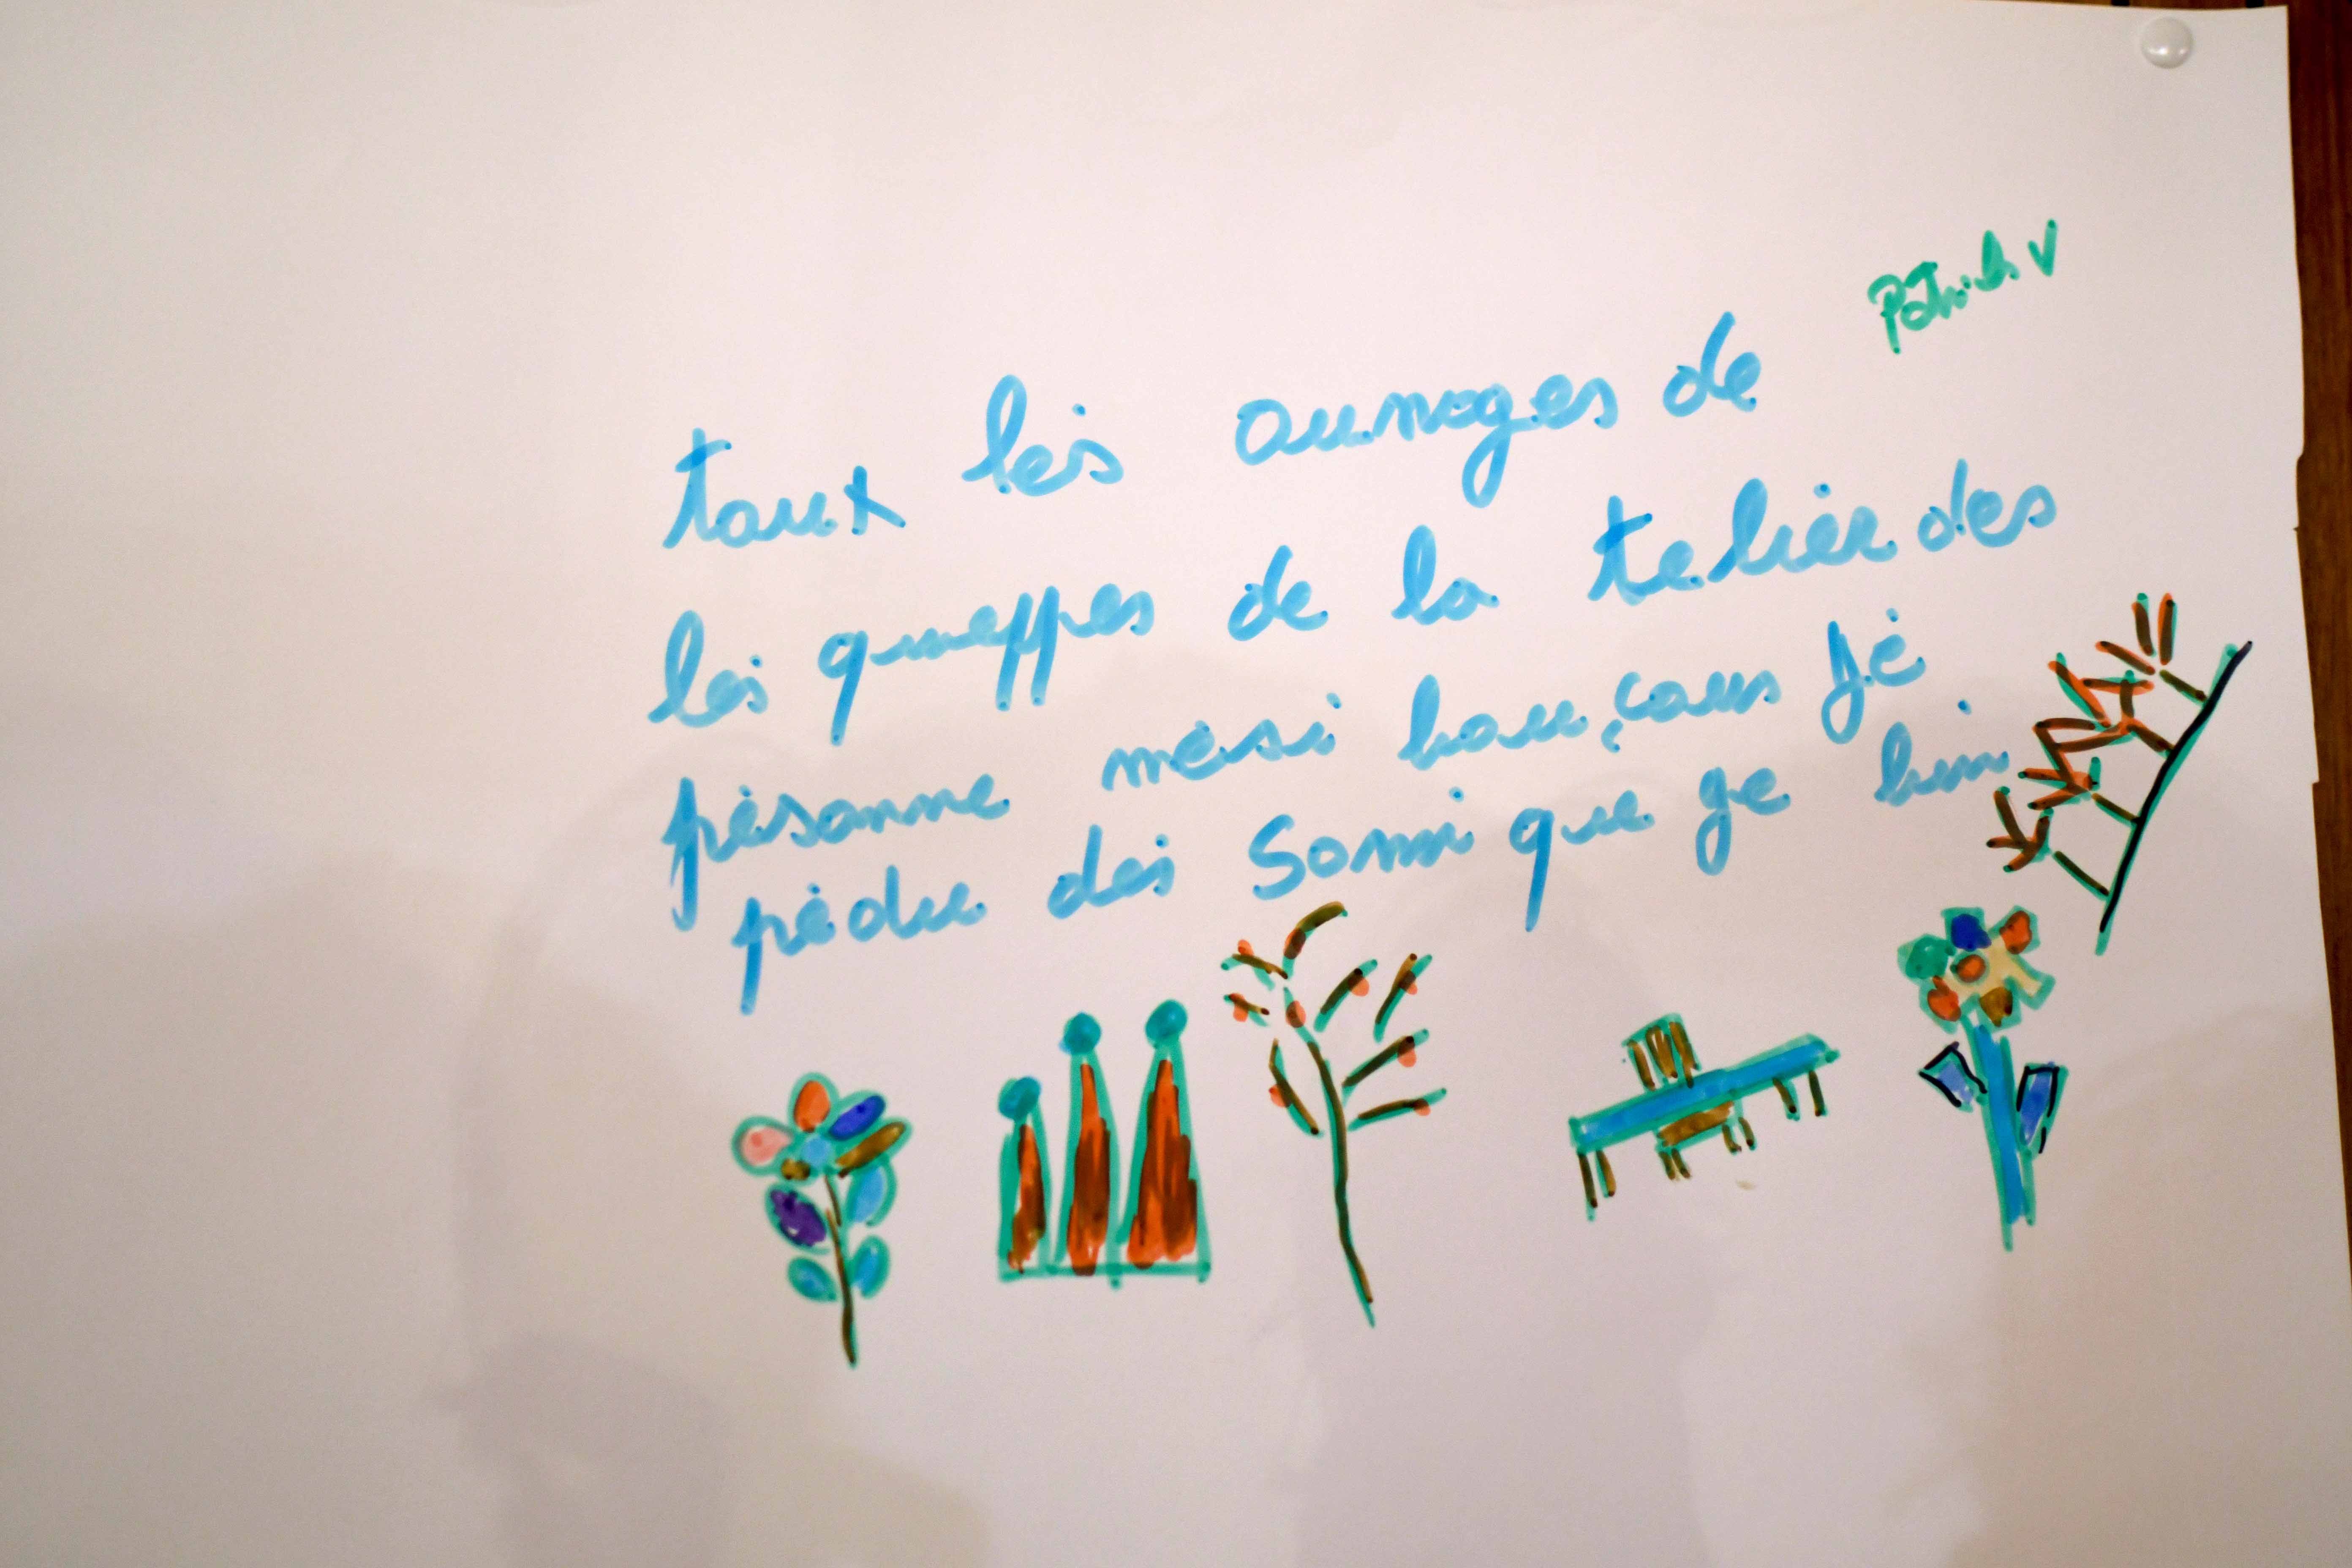 Patrick V
taux les aunoges de
les queppes de la telier des
pèsonne mèsi bou,cous Jé
pèdu des Somi que ge bin